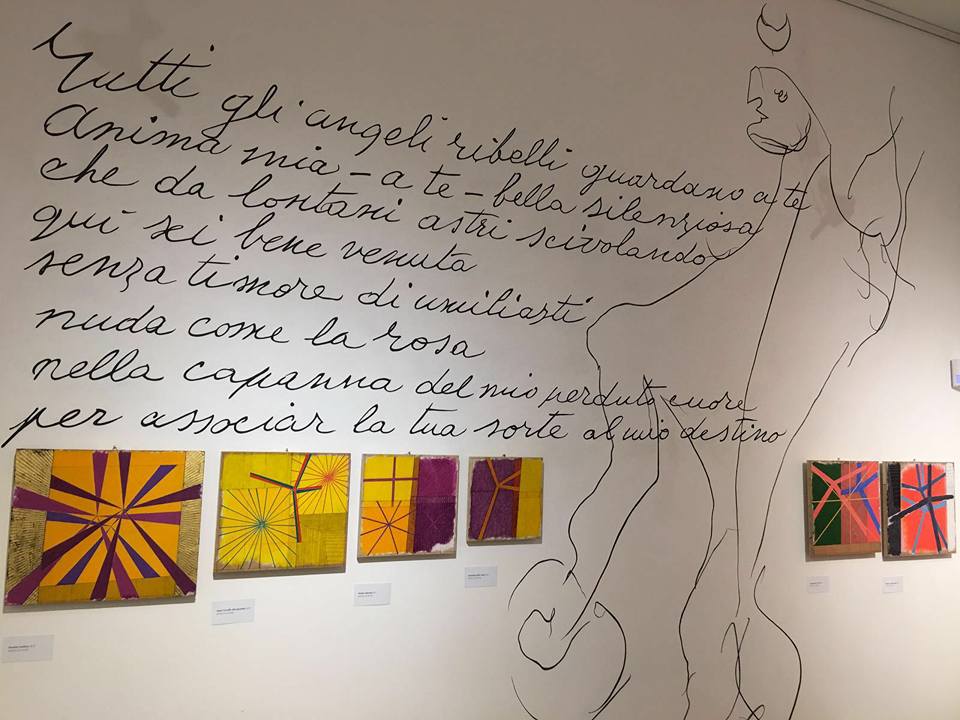 Tutti gli angeli ribelli guardano a te
Anima mia - a te - bella silenziosa
che da lontani astri scivolando
qui sei bene venuta
senza timore di umiliarti
nuda come la rosa
nella capanna del mio perduto cuore
per associar la tua sorte al mio destino